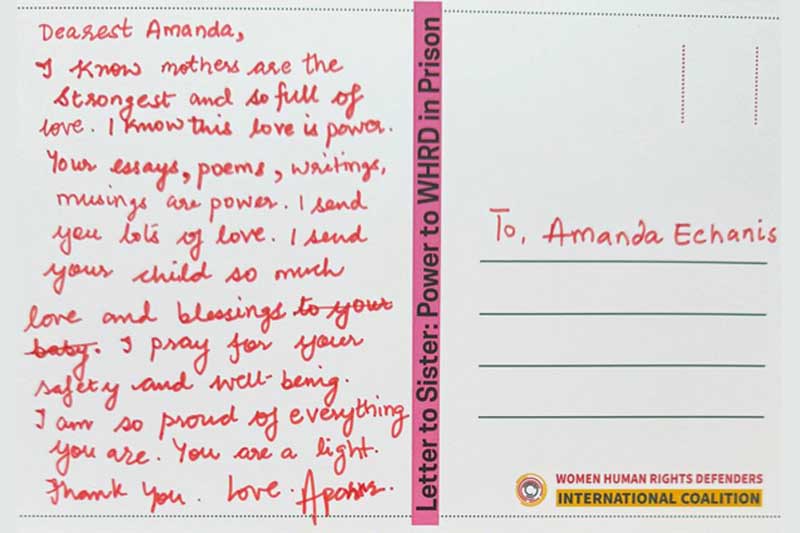 Dearest Amanda,
I know mothers are the
strongest and so full of
love. I know this love is power.
Your essays, poems, writings,
musings are power. I send
you lots of love. I send
your child so much
love and blessings to your
baby. I pray for your
safety and well-being.
I am so proud of everything
you are. You are a light.
Thank you. Love.
Letter to Sister: Power to WHRD in Prison
To, Amanda Echanis
WOMEN HUMAN RIGHTS DEFENDERS
INTERNATIONAL COALITION